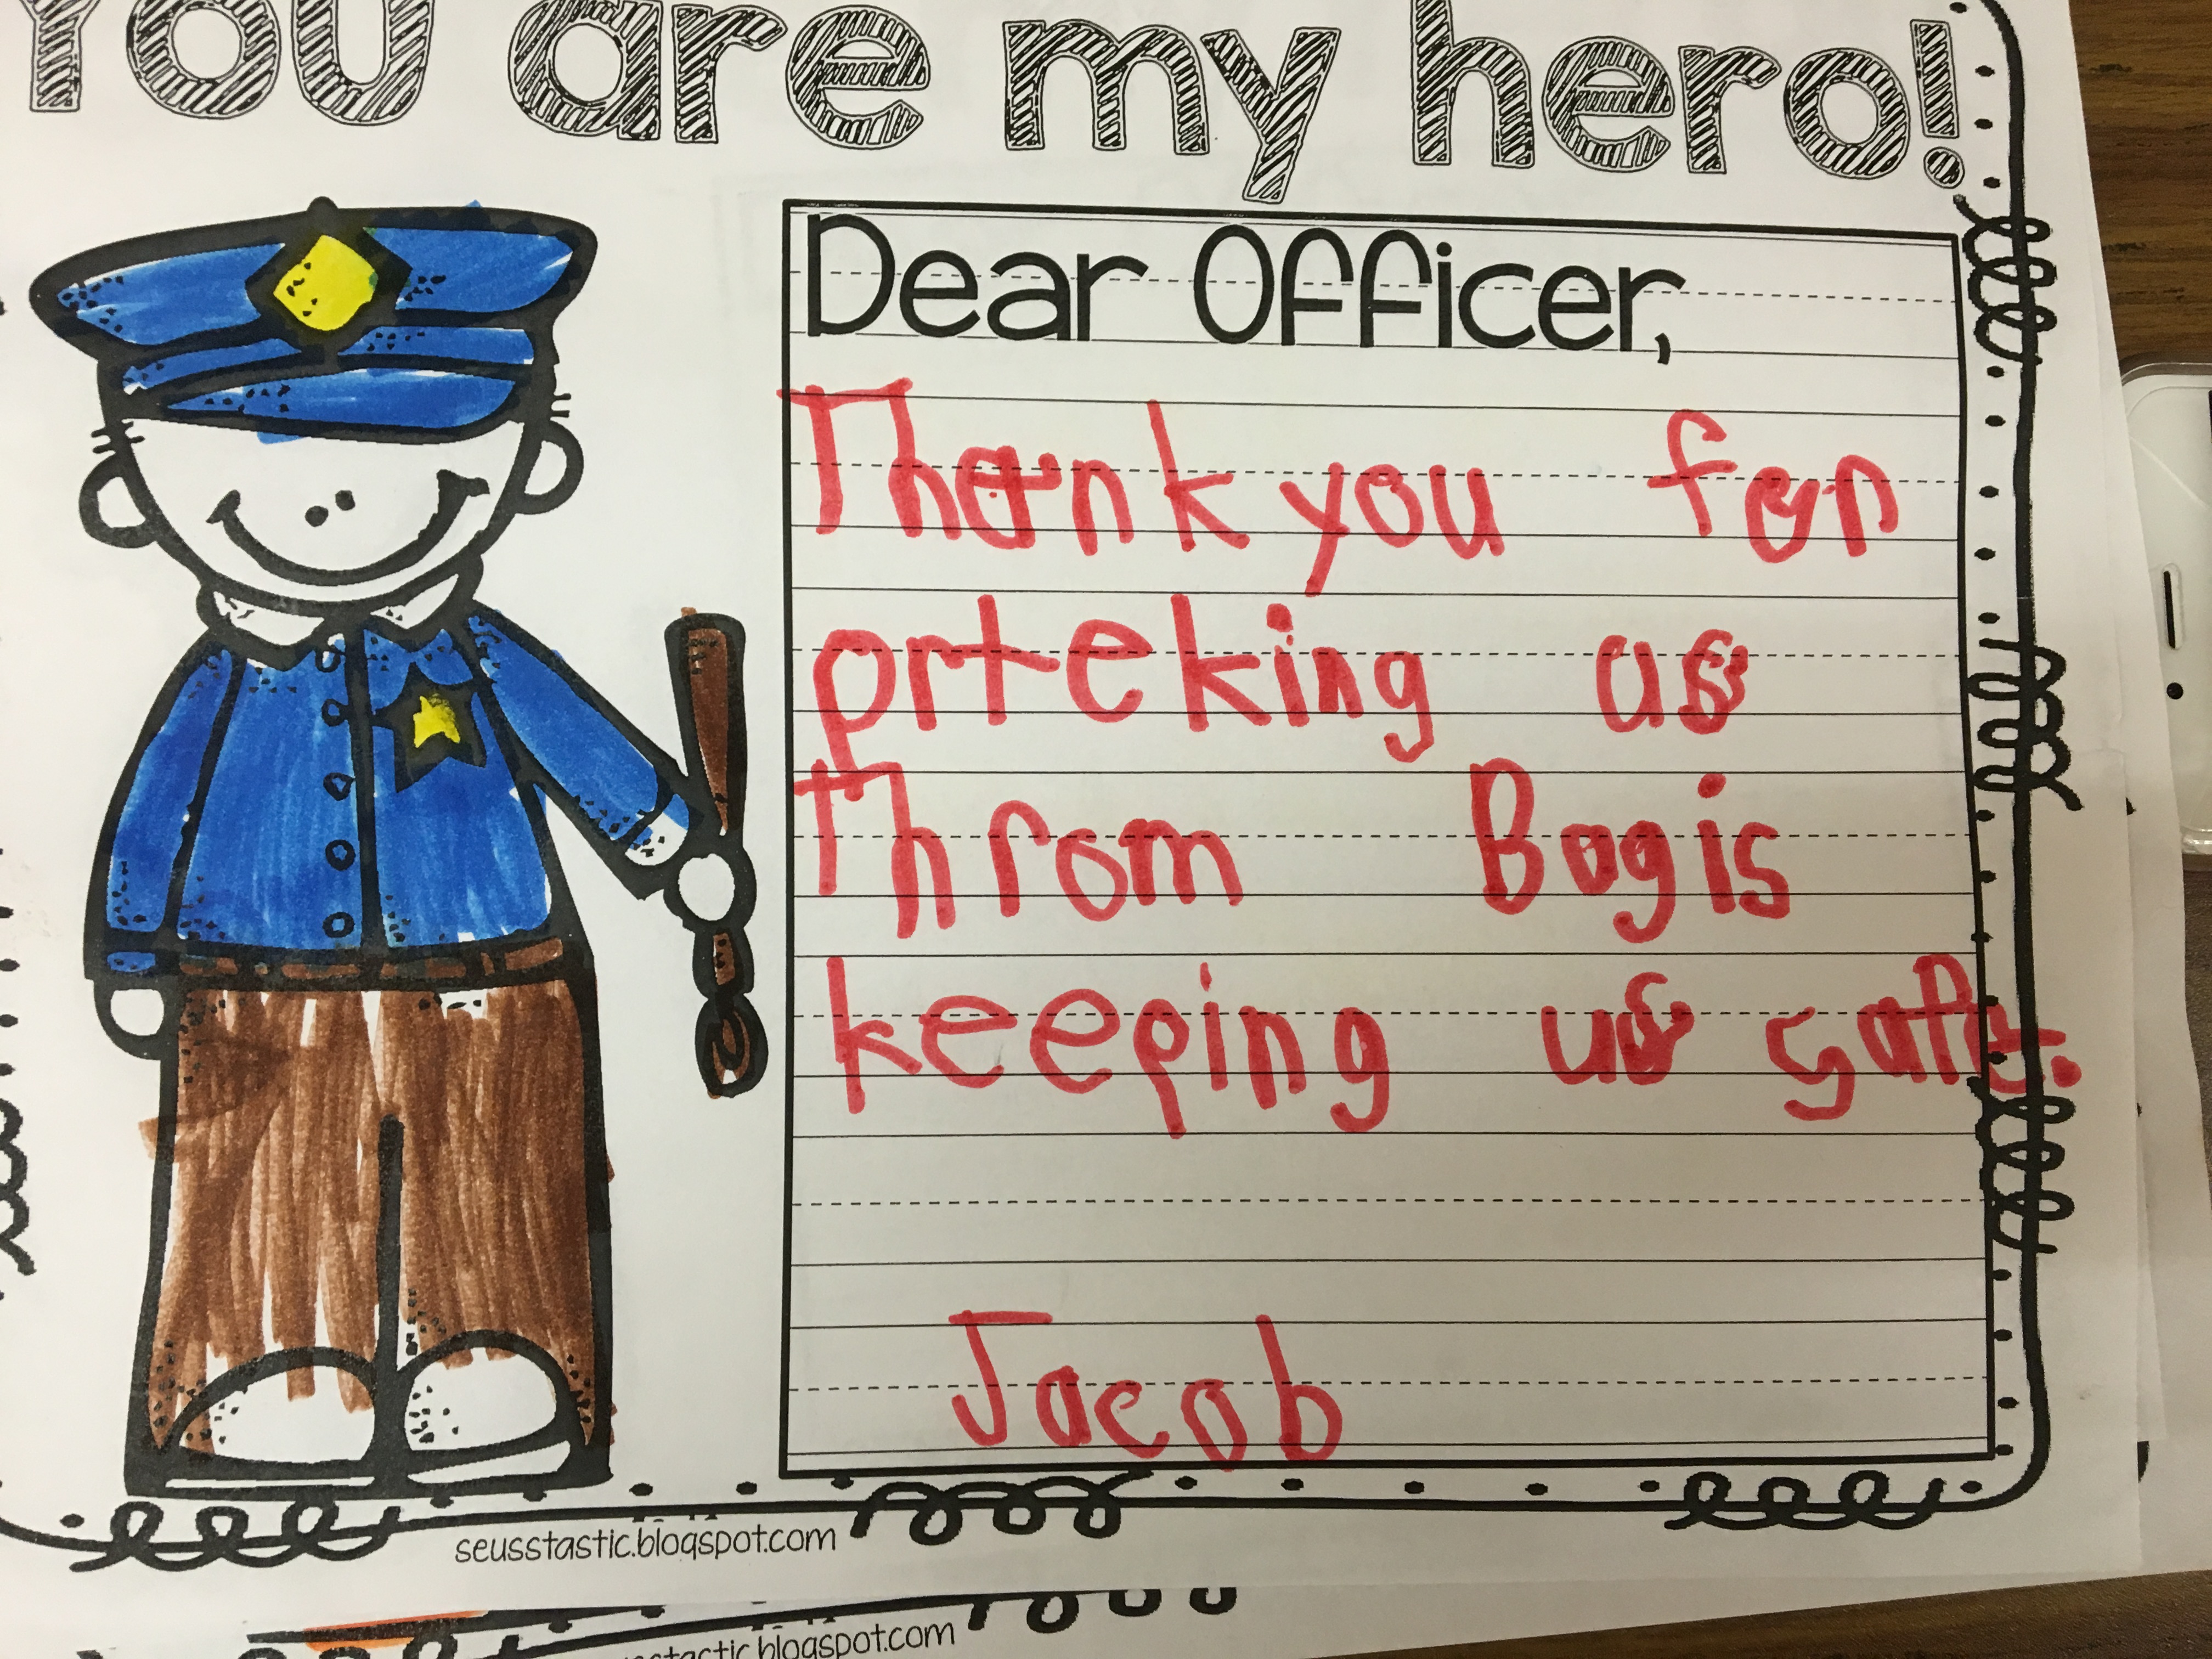 You are my hero!
Dear Officer,
Thank you for
prteking us
Throm Bogis
keeping us safe.
Jacob
seusstastic.blogspot.com
stastic.blogspot.com